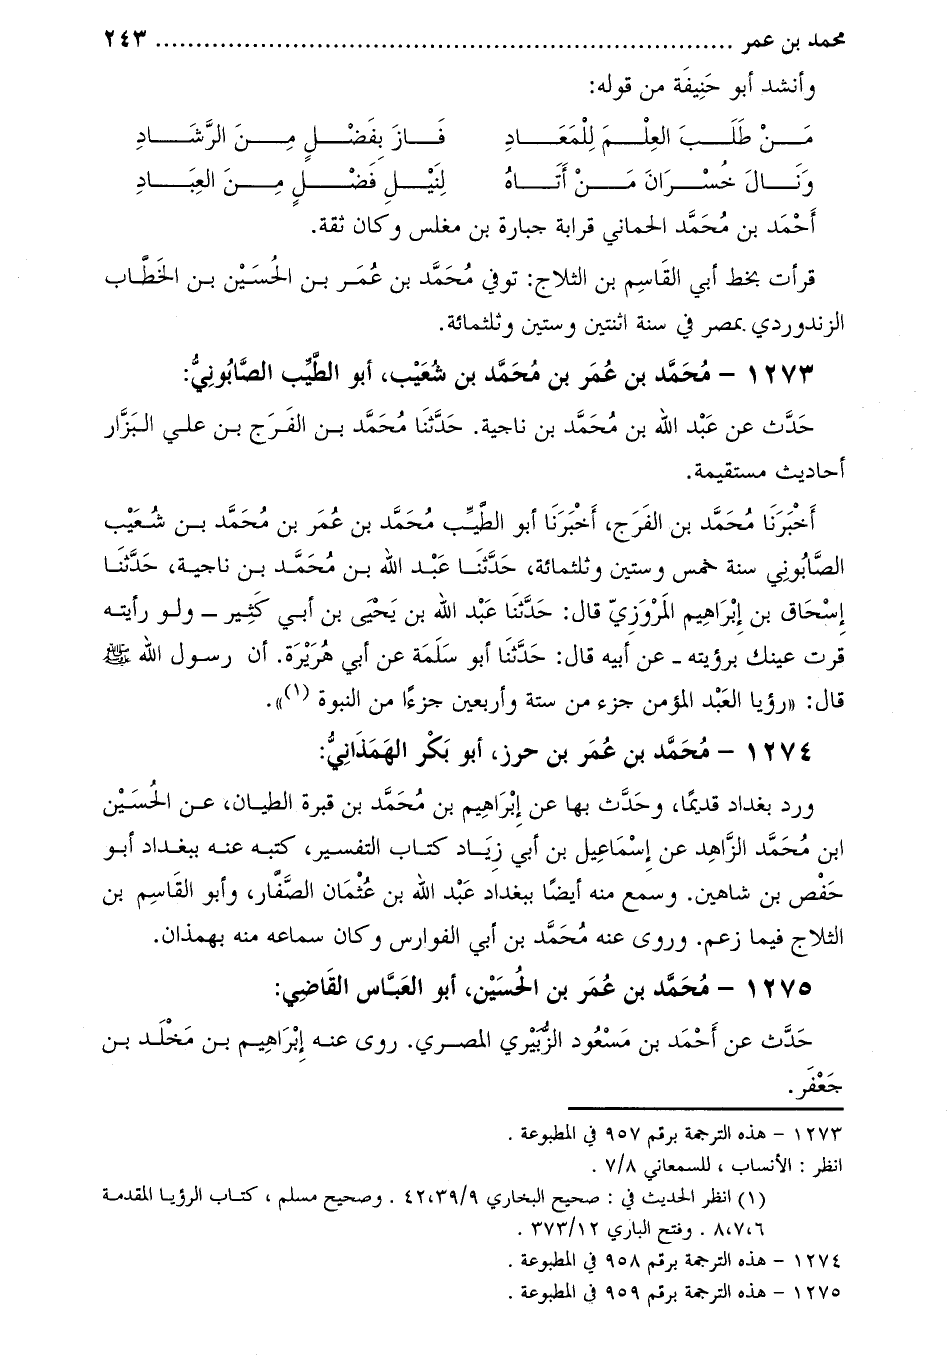 محمد بن عمر ........................................................................ ٢٤٣
وأنشد أبو حَنِيفَة من قوله:
مَـــنْ طَلَـــبَ العِلْـــمَ لِلْمَعَـــادِ فَـــازَ بِفَضْـــلٍ مِـــنَ الرَّشَـــادِ
وَنَـــالَ خُسْـــرَانَ مَـــنْ أَتَـــاهُ لِنَيْـــلِ فَضْـــلٍ مِـــنَ العِبَـــادِ
أَحْمَد بن مُحَمَّد الحماني قرابة جبارة بن مغلس وكان ثقة.
قرأت بخط أبي القَاسِم بن الثلاج: توفي مُحَمَّد بن عُمَر بن الحُسَيْن بن الخَطَّاب
الزندوردي بمصر في سنة اثنتين وستين وثلثمائة.
١٢٧٣ – مُحَمَّد بن عُمَر بن مُحَمَّد بن شُعَيْب، أبو الطَّيِّب الصَّابُونِيُّ:
حَدَّث عن عَبْد الله بن مُحَمَّد بن ناجية. حَدَّثَنَا مُحَمَّد بن الفَرَج بن علي البَزَّار
أحاديث مستقيمة.
أَخْبَرَنَا مُحَمَّد بن الفَرَج، أَخْبَرَنَا أبو الطَّيِّب مُحَمَّد بن عُمَر بن مُحَمَّد بن شُعَيْب
الصَّابُوني سنة خمس وستين وثلثمائة، حَدَّثَنَا عَبْد الله بن مُحَمَّد بن ناجية، حَدَّثَنَا
إِسْحَاق بن إِبْرَاهِيم المَرْوَزِيّ قال: حَدَّثَنَا عَبْد الله بن يَحْيَى بن أبي كَثِير – ولو رأيته
قرت عينك برؤيته – عن أبيه قال: حَدَّثَنَا أبو سَلَمَة عن أبي هُرَيْرَة. أن رسول الله ﷺ
قال: «رؤيا العَبْد المؤمن جزء من ستة وأربعين جزءًا من النبوة (١)».
١٢٧٤ – مُحَمَّد بن عُمَر بن حرز، أبو بَكْر الهَمَذَانِيُّ:
ورد بغداد قديمًا، وحَدَّث بها عن إِبْرَاهِيم بن مُحَمَّد بن قبرة الطيان، عن الحُسَيْن
ابن مُحَمَّد الزَّاهِد عن إِسْمَاعِيل بن أبي زِيَاد كتاب التفسير، كتبه عنه ببغداد أبو
حَفْص بن شاهين. وسمع منه أيضًا ببغداد عَبْد الله بن عُثْمَان الصَّفَّار، وأبو القَاسِم بن
الثلاج فيما زعم. وروى عنه مُحَمَّد بن أبي الفوارس وكان سماعه منه بهمذان.
١٢٧٥ – مُحَمَّد بن عُمَر بن الحُسَيْن، أبو العَبَّاس القَاضِي:
حَدَّث عن أَحْمَد بن مَسْعُود الزُّبَيْري المصري. روى عنه إِبْرَاهِيم بن مَخْلَد بن
جَعْفَر.
١٢٧٣ – هذه الترجمة برقم ٩٥٧ في المطبوعة .
انظر : الأنساب ، للسمعاني ٧/٨ .
(١) انظر الحديث في : صحيح البخاري ٤٢،٣٩/٩ . وصحيح مسلم ، كتاب الرؤيا المقدمة
٨،٧،٦ . وفتح الباري ٣٧٣/١٢ .
١٢٧٤ – هذه الترجمة برقم ٩٥٨ في المطبوعة .
١٢٧٥ – هذه الترجمة برقم ٩٥٩ في المطبوعة .